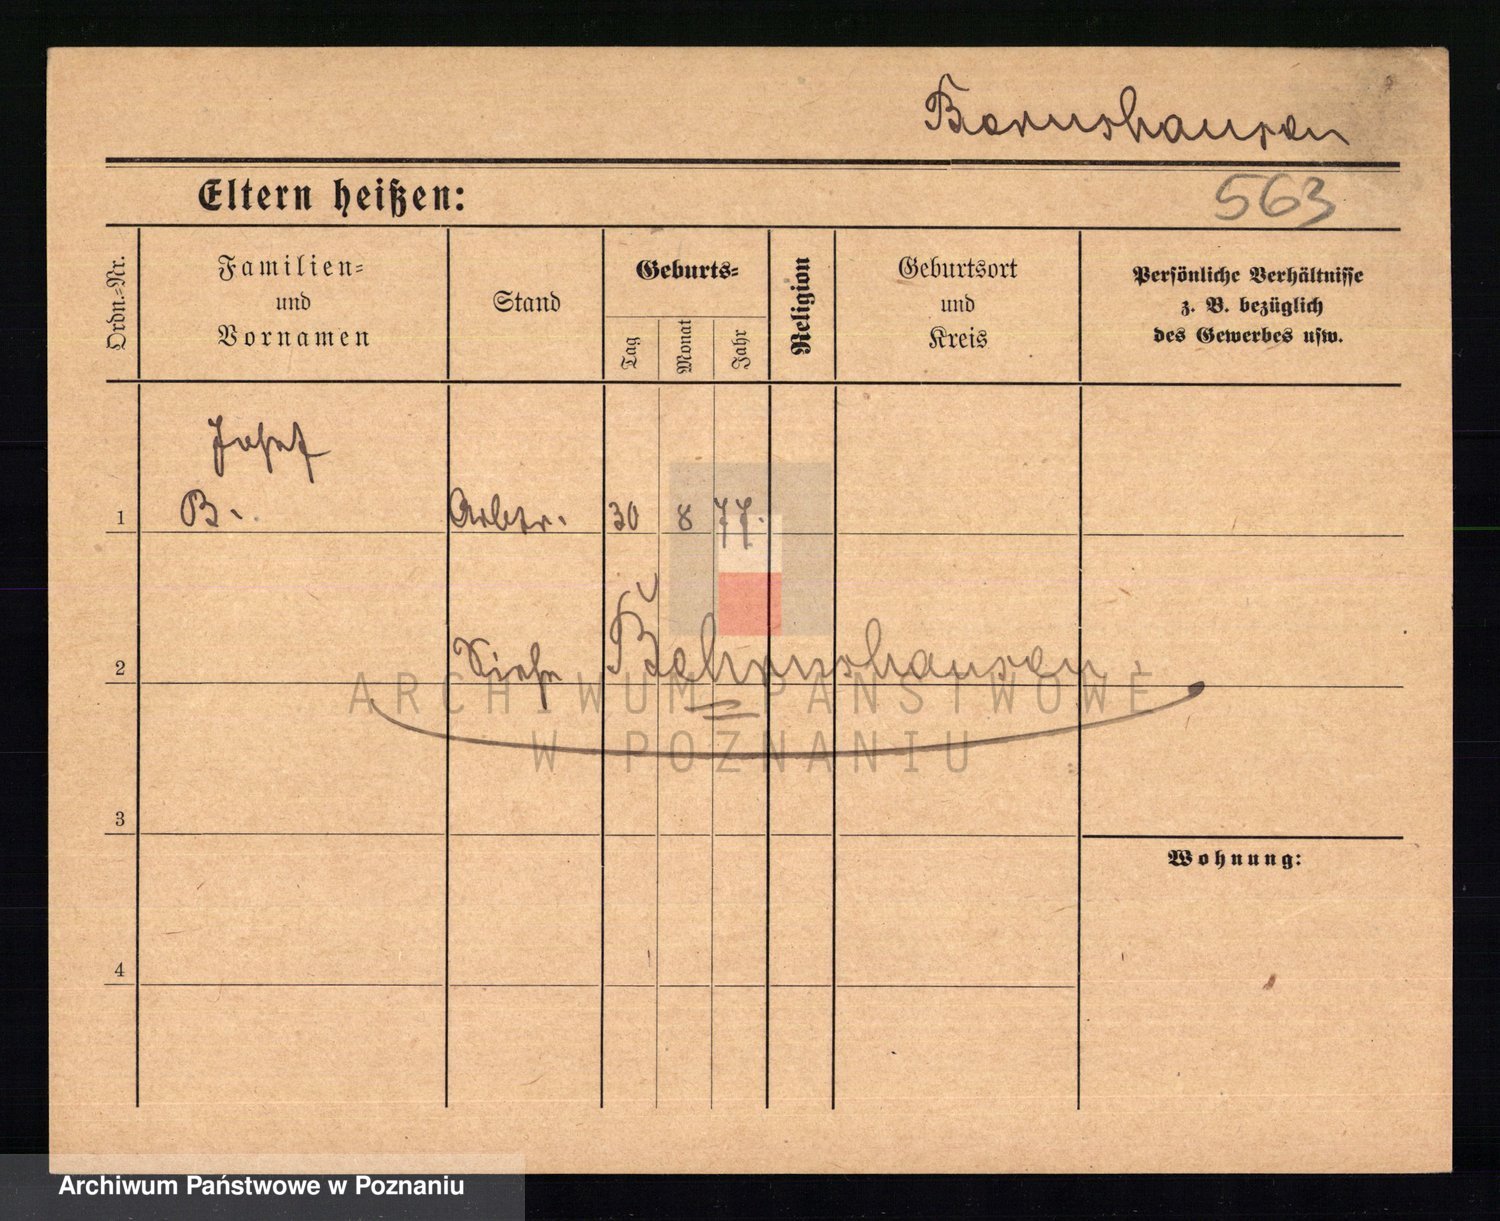 Bornshausen
Eltern heißen:
563
Ordn.=Nr.
Familien=
und
Vornamen
Stand
Geburts=
Tag
Monat
Jahr
Religion
Geburtsort
und
Kreis
Persönliche Verhältnisse
z. B. bezüglich
des Gewerbes usw.
Josef
1 B. Arbtr. 30 8 77.
2 Siehe Bohrnshausen.
ARCHIWUM PAŃSTWOWE
W POZNANIU
3
Wohnung:
4
Archiwum Państwowe w Poznaniu